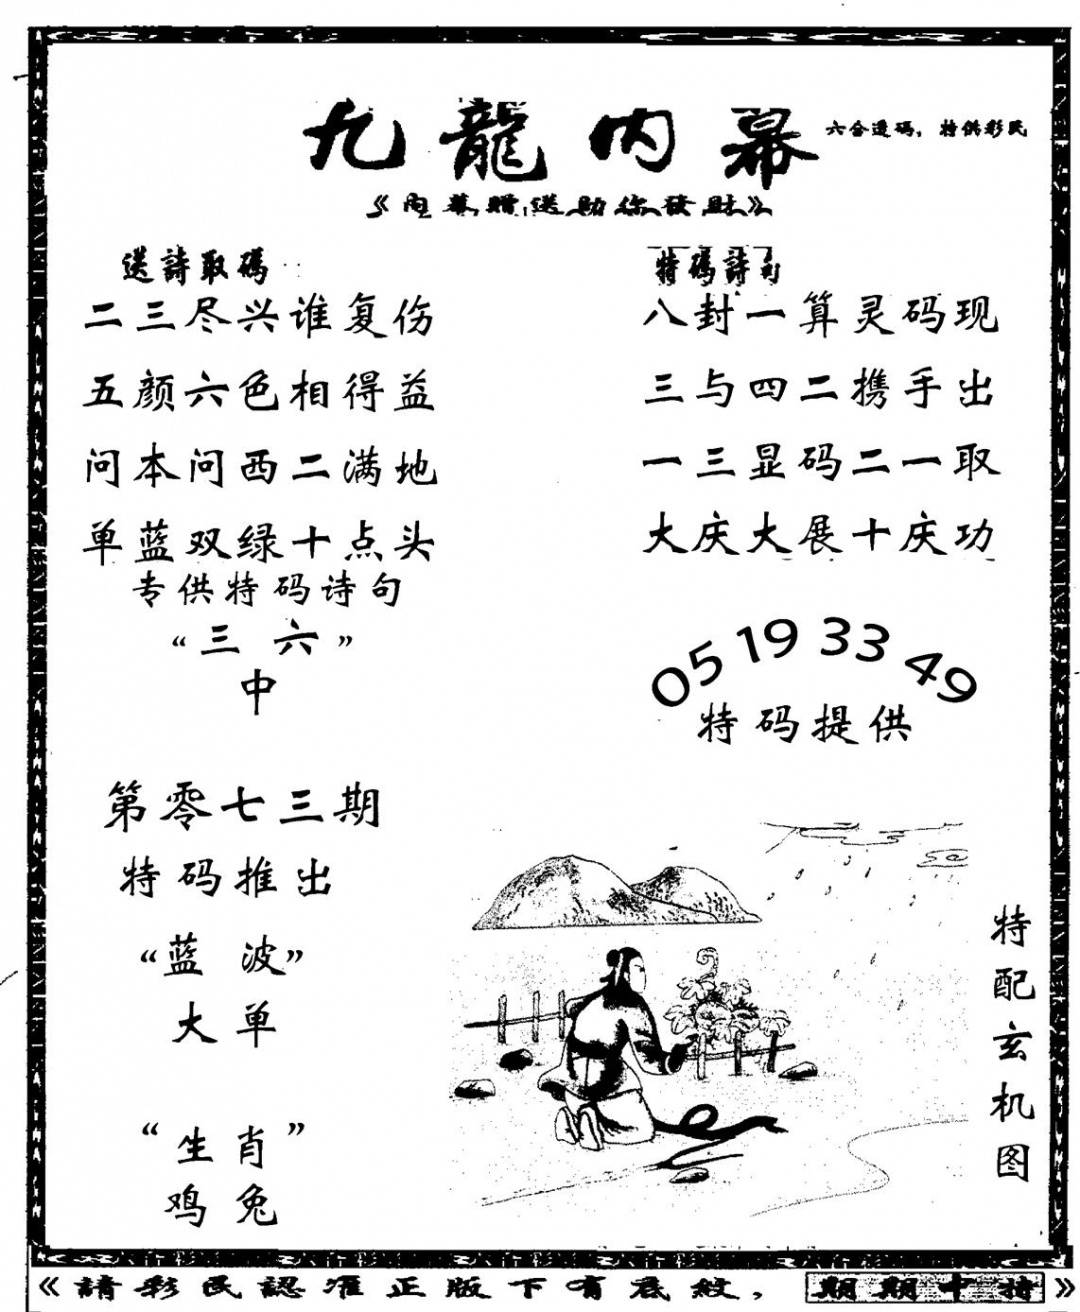 九龍内幕
六合透碼，特供彩民
《内幕赠送助你發财》
送詩取碼
二三尽兴谁复伤
五颜六色相得益
问本问西二满地
单蓝双绿十点头
专供特码诗句
“三 六”
中
特碼詩句
八封一算灵码现
三与四二携手出
一三显码二一取
大庆大展十庆功
05 19 33 49
特码提供
第零七三期
特码推出
“蓝 波”
大单
“生肖”
鸡兔
特配玄机图
《請彩民認准正版下有底紋，期期中特》